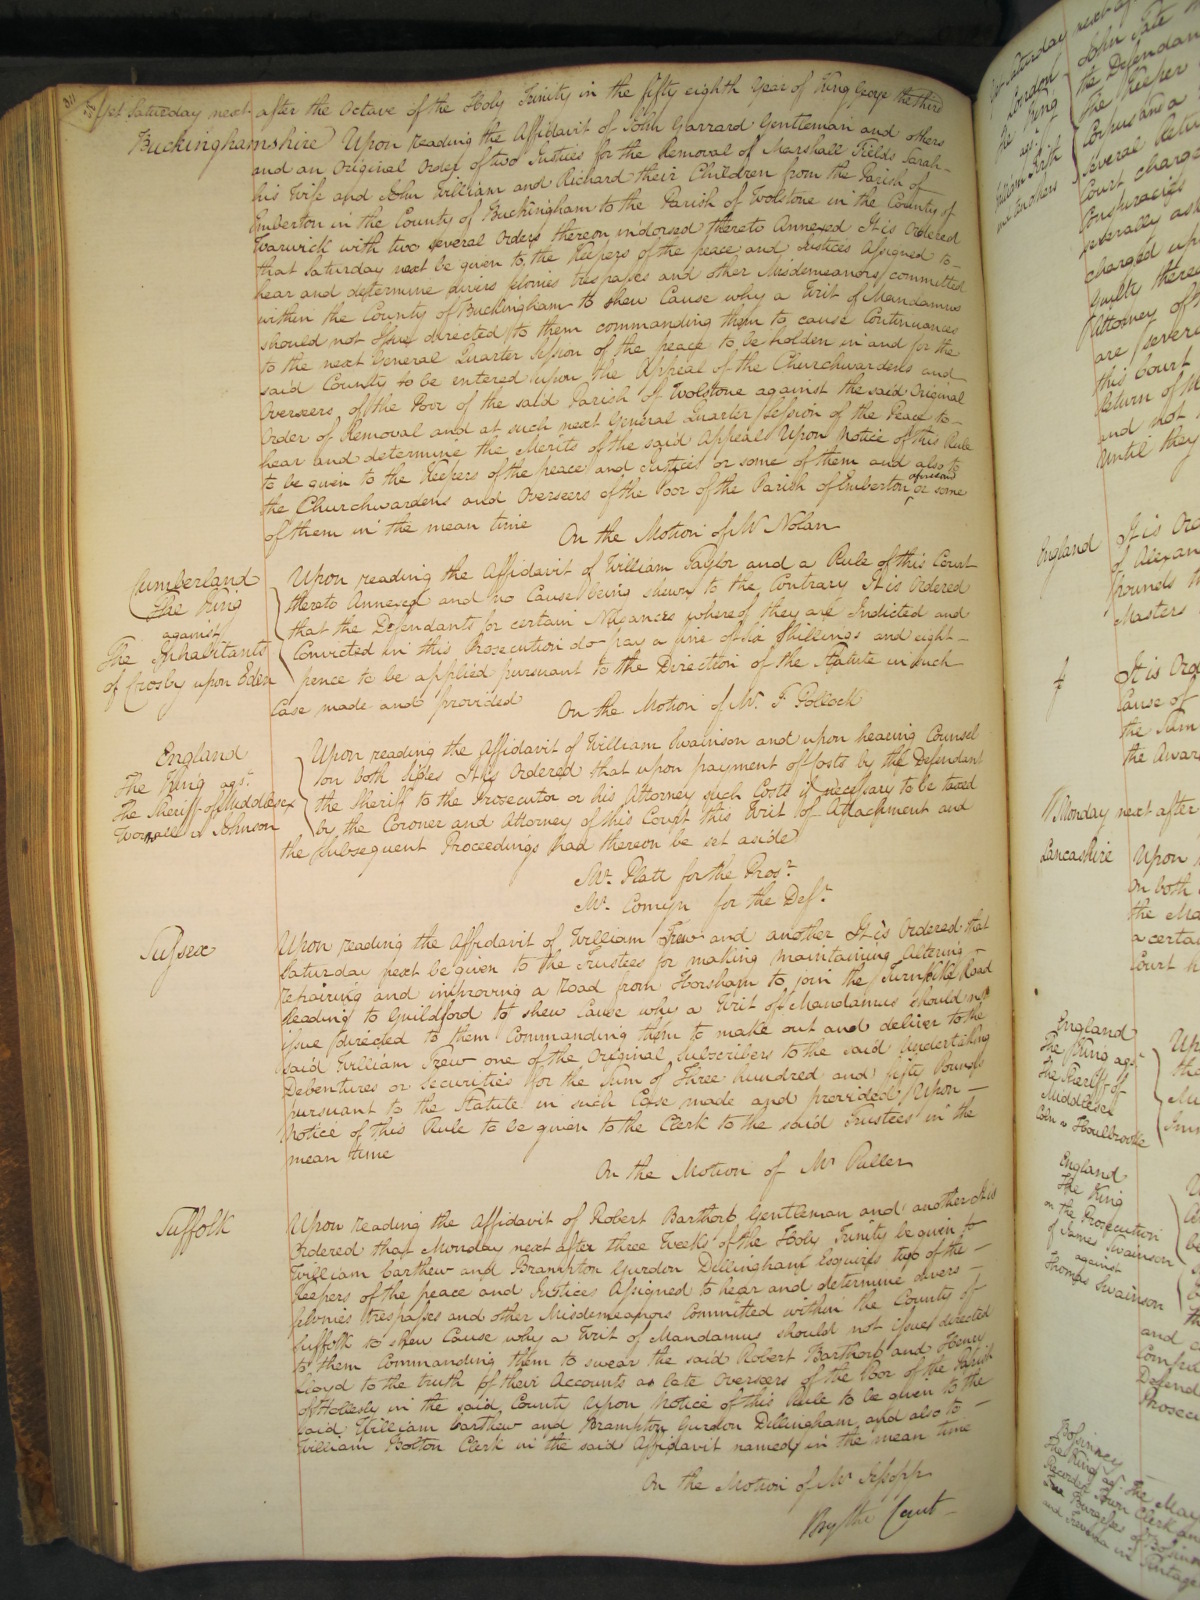 Yet Saturday next after the Octave of the Holy Trinity in the fifty eighth Year of King George the third
Buckinghamshire Upon reading the Affidavit of John Garrard Gentleman and others
and an Original Order of two Justices for the Removal of Marshall Fields Sarah
his Wife and John William and Richard their Children from the Parish of
Emberton in the County of Buckingham to the Parish of Wolstone in the County of
Warwick with two several Orders thereon indorsed thereto Annexed It is Ordered
that Saturday next be given to the Keepers of the peace and Justices Assigned to
hear and determine divers felonies trespasses and other Misdemeanors committed
within the County of Buckingham to shew Cause why a Writ of Mandamus
should not Issue directed to them commanding them to cause Continuances
to the next General Quarter Session of the peace to be holden in and for the
said County to be entered upon the Appeal of the Churchwardens and
Overseers of the Poor of the said Parish of Wolstone against the said Original
Order of Removal and at such next General Quarter Session of the Peace to
hear and determine the Merits of the said Appeal Upon Notice of this Rule
to be given to the Keepers of the peace and Justices or some of them and also to
the Churchwardens and Overseers of the Poor of the Parish of Emberton aforesaid or some
of them in the mean time
On the Motion of Mr Nolan
Cumberland
The King
against
The Inhabitants
of Crosby upon Eden
Upon reading the Affidavit of William Taylor and a Rule of this Court
thereto Annexed and no Cause being shewn to the Contrary It is Ordered
that the Defendants for certain Nuisances whereof they are Indicted and
Convicted in this Prosecution do pay a fine of six Shillings and eight
pence to be applied pursuant to the Direction of the Statute in such
Case made and provided
On the Motion of Mr. F. Pollock
England
The King agst.
The Sheriff of Middlesex
Wornale v Johnson
Upon reading the Affidavit of William Swainson and upon hearing Counsel
on both sides It is Ordered that upon payment of Costs by the Defendant
the Sheriff to the Prosecutor or his Attorney such Costs if necessary to be taxed
by the Coroner and Attorney of this Court this Writ of Attachment and
the subsequent Proceedings had thereon be set aside
Mr. Platt for the Prosr.
Mr. Comyn for the Deft.
Sussex
Upon reading the Affidavit of William Trew and another It is Ordered that
Saturday next be given to the Trustees for making maintaining altering
repairing and improving a Road from Horsham to join the Turnpike Road
leading to Guildford to shew Cause why a Writ of Mandamus should not
issue directed to them Commanding them to make out and deliver to the
said William Trew one of the Original Subscribers to the said Undertaking
Debentures or Securities for the Sum of Three hundred and fifty Pounds
pursuant to the Statute in such Case made and provided Upon
Notice of this Rule to be given to the Clerk to the said Trustees in the
mean time
On the Motion of Mr Puller
Suffolk
Upon reading the Affidavit of Robert Barthorp Gentleman and another It is
Ordered that Monday next after three Weeks of the Holy Trinity be given to
William Carthew and Brampton Gurdon Dillingham Esquires two of the
Keepers of the peace and Justices Assigned to hear and determine divers
felonies trespasses and other Misdemeanors Committed within the County of
Suffolk to shew Cause why a Writ of Mandamus should not issue directed
to them Commanding them to swear the said Robert Barthorp and Henry
Lloyd to the truth of their Accounts as late Overseers of the Poor of the Parish
of Hollesly in the said County Upon Notice of this Rule to be given to the
said William Carthew and Brampton Gurdon Dillingham and also to
William Bolton Clerk in the said Affidavit named in the mean time
On the Motion of Mr Jessopp
By the Court
Yet Saturday next
London
The King
agst
William
and
John Tate
the Defendan
the Keeper
Corpus and a
several Retu
Court charge
Conspiracies
severally ask
charged upo
guilty there
Attorney of
are several
this Court
Return of th
and not
until they
England
It is Ord
of Alexan
pounds t
Masters
It is Ord
Cause of
the Sum
the Awar
Monday next after
Lancashire
Upon
on both
the Ma
a certai
Court h
England
The King agst.
The Sheriff of
Middlesex
v Houlbrooke
Up
the
England
The King
on the Prosecution
of James Swainson
against
Thomas Swainson
and
Compu
Defend
Prosecu
Bossiney
The King agst. The May
Recorder Town Clerk an
Burgesses of Bossin
and Trevena in Tintage